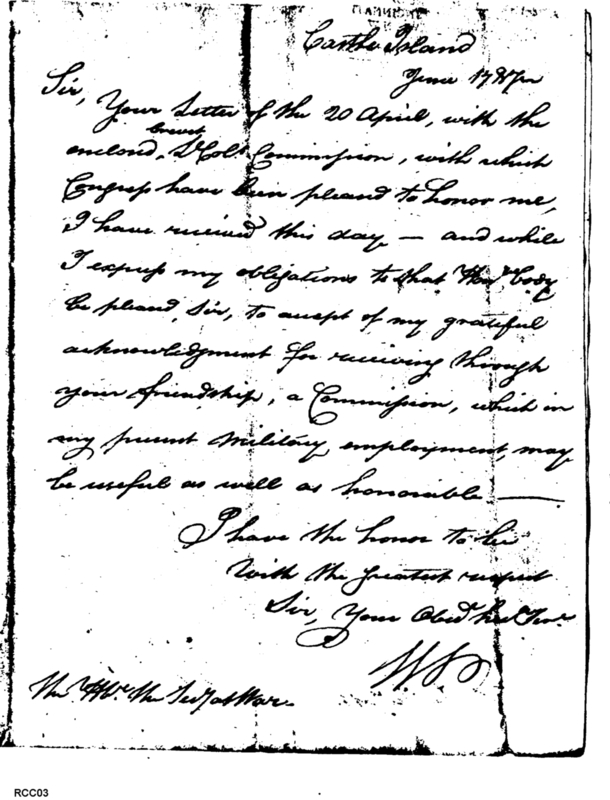 Castle Island
June 1787
Sir,
Your Letter of the 20 April, with the
brevet
enclosd, Lt Cols Commission, with which
Congress have been pleased to honor me,
I have received this day — and while
I express my obligations to that Honl. body
be pleasd, Sir, to accept of my grateful
acknowledgment for receiving through
your friendship, a Commission, which in
my present military employment, may
be useful as well as honorable —
I have the honor to be
With the greatest respect
Sir, Your Obed. hul. Serv.
The Hbl. the Secy at War.
RCC03